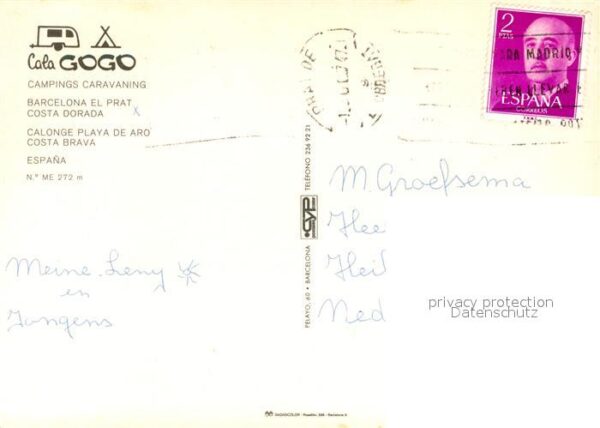 Cala GOGO
CAMPINGS CARAVANING
BARCELONA EL PRAT
COSTA DORADA
CALONGE PLAYA DE ARO
COSTA BRAVA
ESPAÑA
N.º ME 272 m
Meine Leny
en
Jongens
PELAYO, 60 • BARCELONA
CYP
TELÉFONO 236 92 21
PRAT DE
2
PTAS
PARA MADRID
ESPAÑA
CORREOS
M. Groefsema
Hee
Hei
Ned
privacy protection
Datenschutz